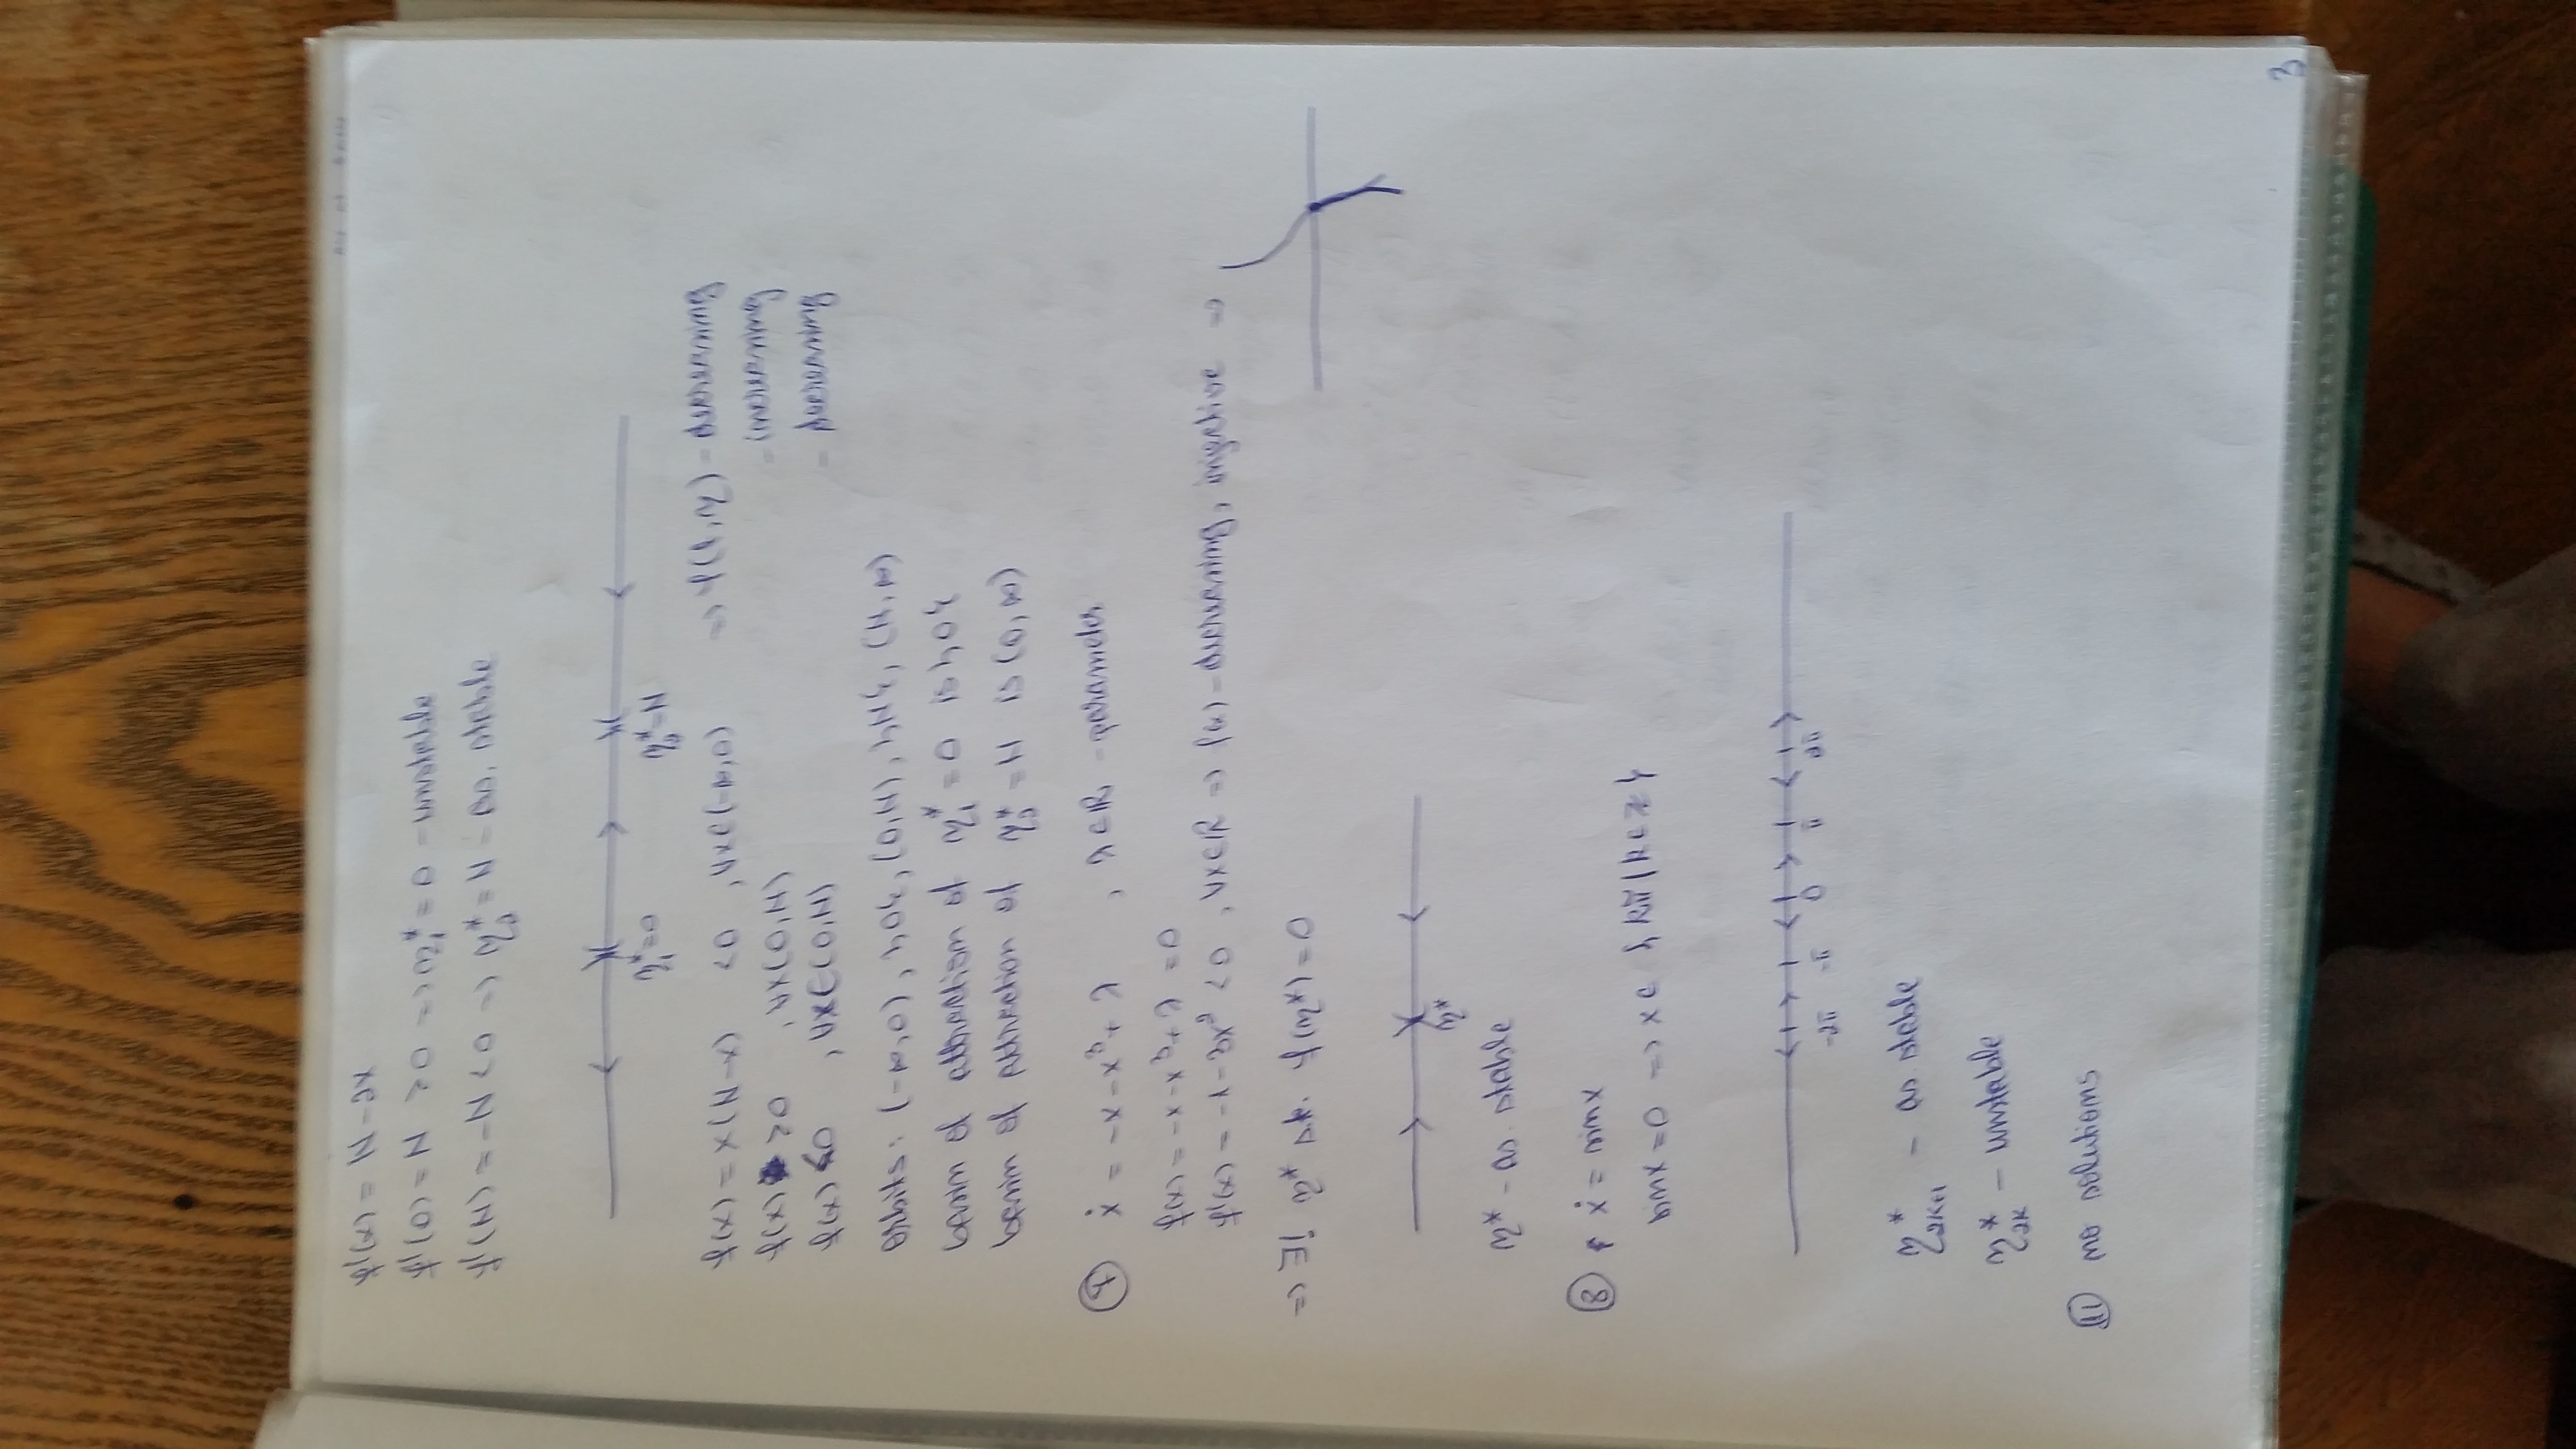 f'(x) = N - 2x
f'(0) = N > 0 => η₁* = 0 - unstable
f'(N) = -N < 0 => η₂* = N - as. stable
η₁* = 0 η₂* = N
f(x) = x(N-x) < 0 , ∀x∈(-∞,0) => φ(t,η) - decreasing
f(x) > 0 , ∀x(0,N) - increasing
f(x) < 0 , ∀x∈(0,N) - decreasing
orbits: (-∞,0), {0}, (0,N), {N}, (N,∞)
basin of attraction of η₁* = 0 is {0}
basin of attraction of η₂* = N is (0,∞)
⑦ ẋ = -x - x³ + λ , λ∈ℝ - parameter
f(x) = -x - x³ + λ = 0
f'(x) = -1 - 3x² < 0 , ∀x∈ℝ => f(x) - decreasing, injective =>
=> ∃! η* s.t. f(η*) = 0
η*
η* - as. stable
⑧ ẋ = sinx
sinx = 0 => x ∈ {kπ | k∈ℤ}
-2π -π 0 π 2π
η*₂ₖ₊₁ - as. stable
η*₂ₖ - unstable
⑪ no solutions
3